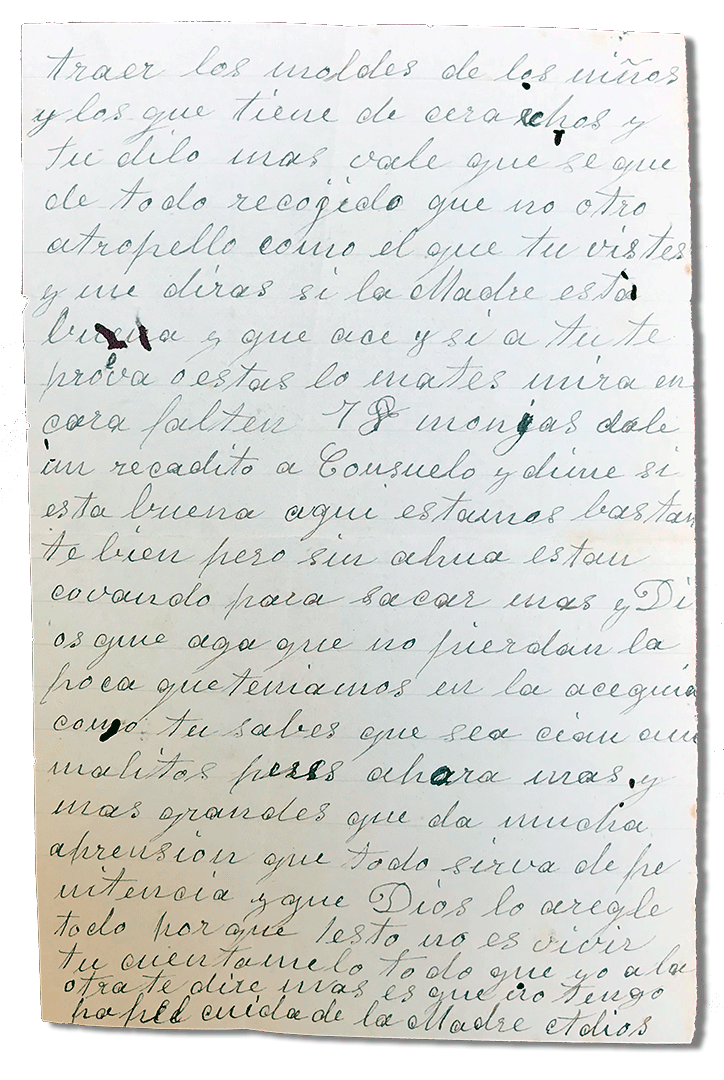 traer los moldes de los niños
y los que tiene de cera echos y
tu dilo mas vale que se que
de todo recojido que no otro
atropello como el que tu vistes
y me diras si la Madre esta
buena y que ace y si a tu te
prova o estas lo mates mira en
cara falten 78 monjas dale
un recadito a Consuelo y dime si
esta buena aqui estamos bastan
te bien pero sin ahua estan
covando para sacar mas y Di
os que aga que no pierdan la
poca que teniamos en la acequia
como tu sabes que sea cian ani
malitos pues ahora mas y
mas grandes que da mucha
aprension que todo sirva de pe
nitencia y que Dios lo aregle
todo porque esto no es vivir
tu cuentamelo todo que yo a la
otra te dire mas es que no tengo
papel cuida de la Madre Adios